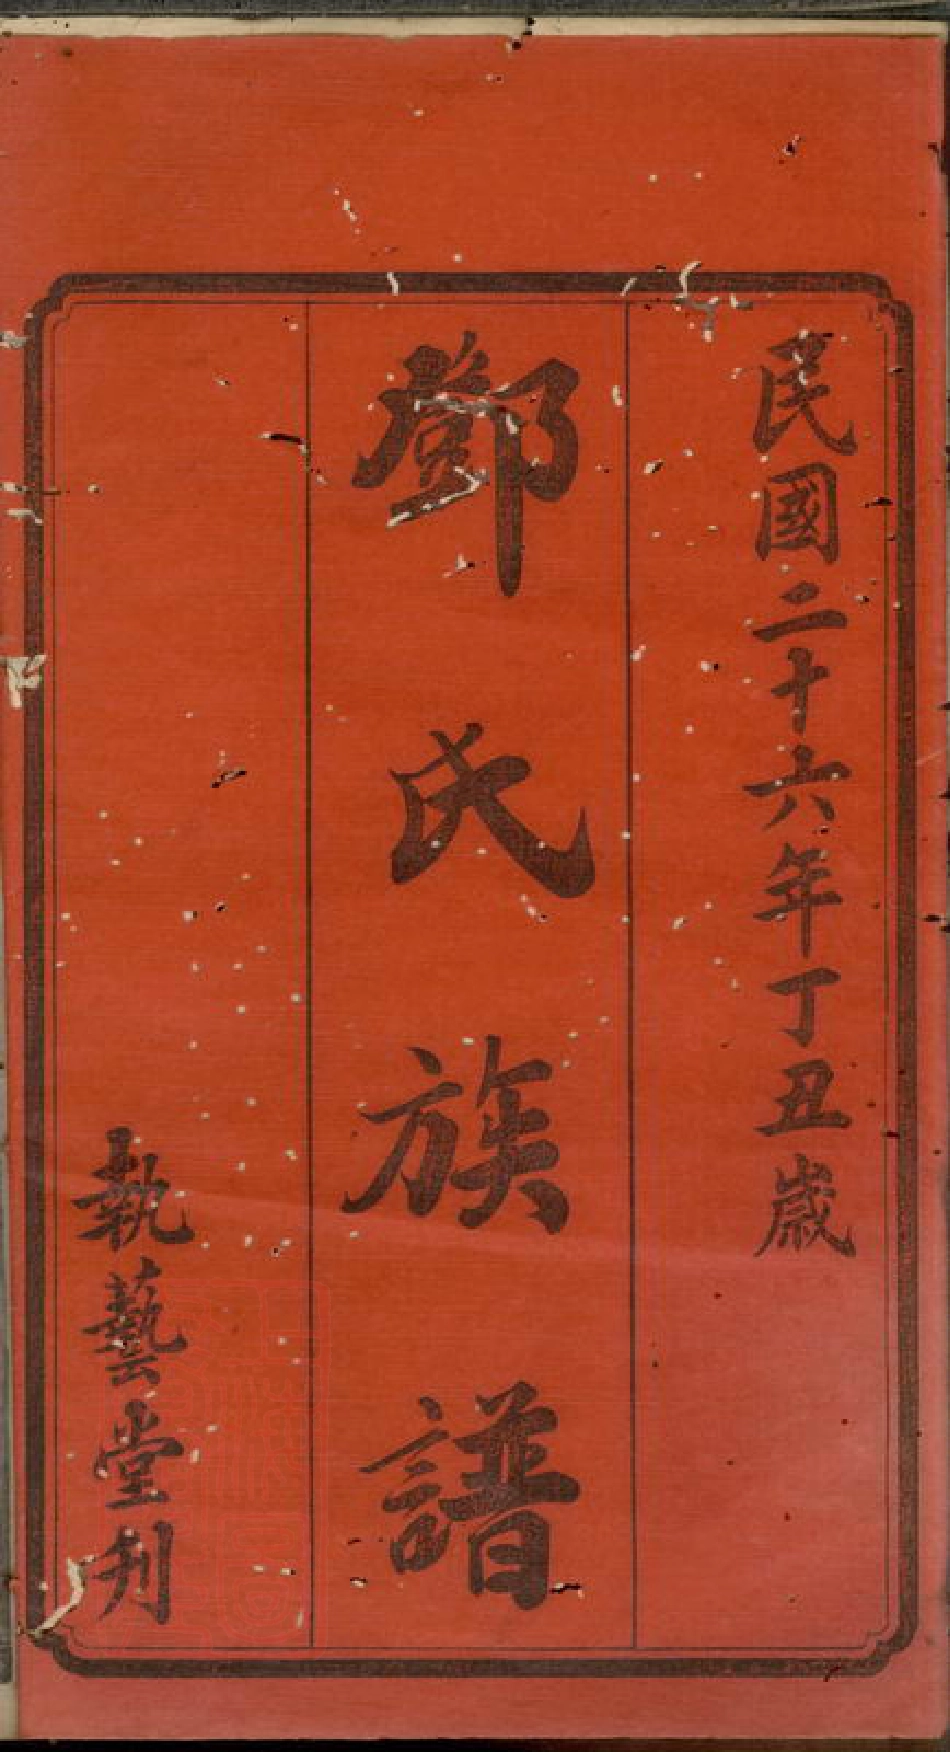 民國二十六年丁丑歲
鄧氏族譜
執藝堂刋